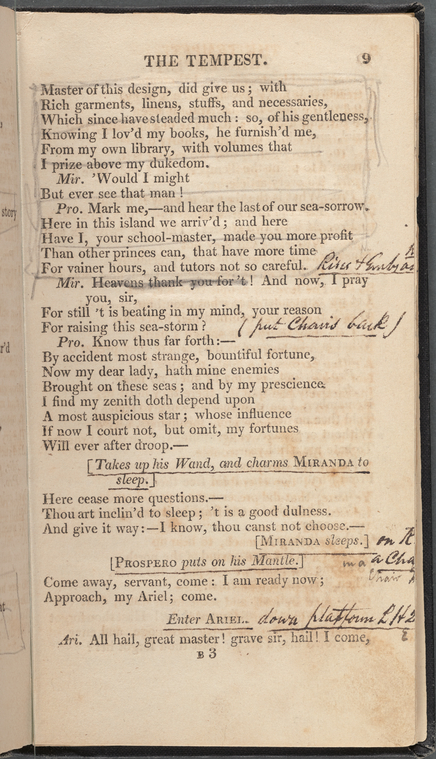 THE TEMPEST. 9
Master of this design, did give us; with
Rich garments, linens, stuffs, and necessaries,
Which since have steaded much: so, of his gentleness,
Knowing I lov'd my books, he furnish'd me,
From my own library, with volumes that
I prize above my dukedom.
Mir. 'Would I might
But ever see that man!
Pro. Mark me,—and hear the last of our sea-sorrow.
Here in this island we arriv'd; and here
Have I, your school-master, made you more profit
Than other princes can, that have more time
For vainer hours, and tutors not so careful. Rises &
Mir. Heavens thank you for't! And now, I pray
you, sir,
For still 't is beating in my mind, your reason
For raising this sea-storm? (put Chairs back)
Pro. Know thus far forth:—
By accident most strange, bountiful fortune,
Now my dear lady, hath mine enemies
Brought on these seas; and by my prescience
I find my zenith doth depend upon
A most auspicious star; whose influence
If now I court not, but omit, my fortunes
Will ever after droop.—
[Takes up his Wand, and charms MIRANDA to
sleep.]
Here cease more questions.—
Thou art inclin'd to sleep; 't is a good dulness.
And give it way:—I know, thou canst not choose.—
[MIRANDA sleeps.] on
[PROSPERO puts on his Mantle.] in a Cha
Come away, servant, come: I am ready now;
Approach, my Ariel; come.
Enter ARIEL. down platform L H
Ari. All hail, great master! grave sir, hail! I come,
B 3
story
r'd